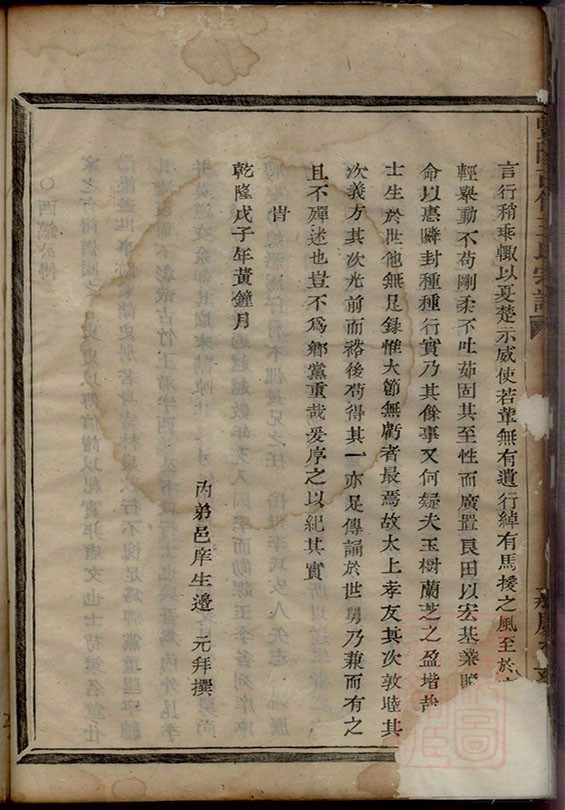 言行稍乖輒以夏楚示威使若輩無有遺行綽有馬援之風至於
輕舉動不苟剛柔不吐茹固其至性而廣置良田以宏基業賙
命以惠隣封種種行實乃其餘事又何疑夫玉樹蘭芝之盈堦哉
士生於世他無足錄惟大節無虧者最焉故太上孝友其次敦睦其
次義方其次光前而裕後苟得其一亦足傳誦於世舅乃兼而有之
且不殫述也豈不為鄉黨重哉爰序之以紀其實
旹
乾隆戊子年黃鐘月
內弟邑庠生邊 元拜撰
王氏宗譜